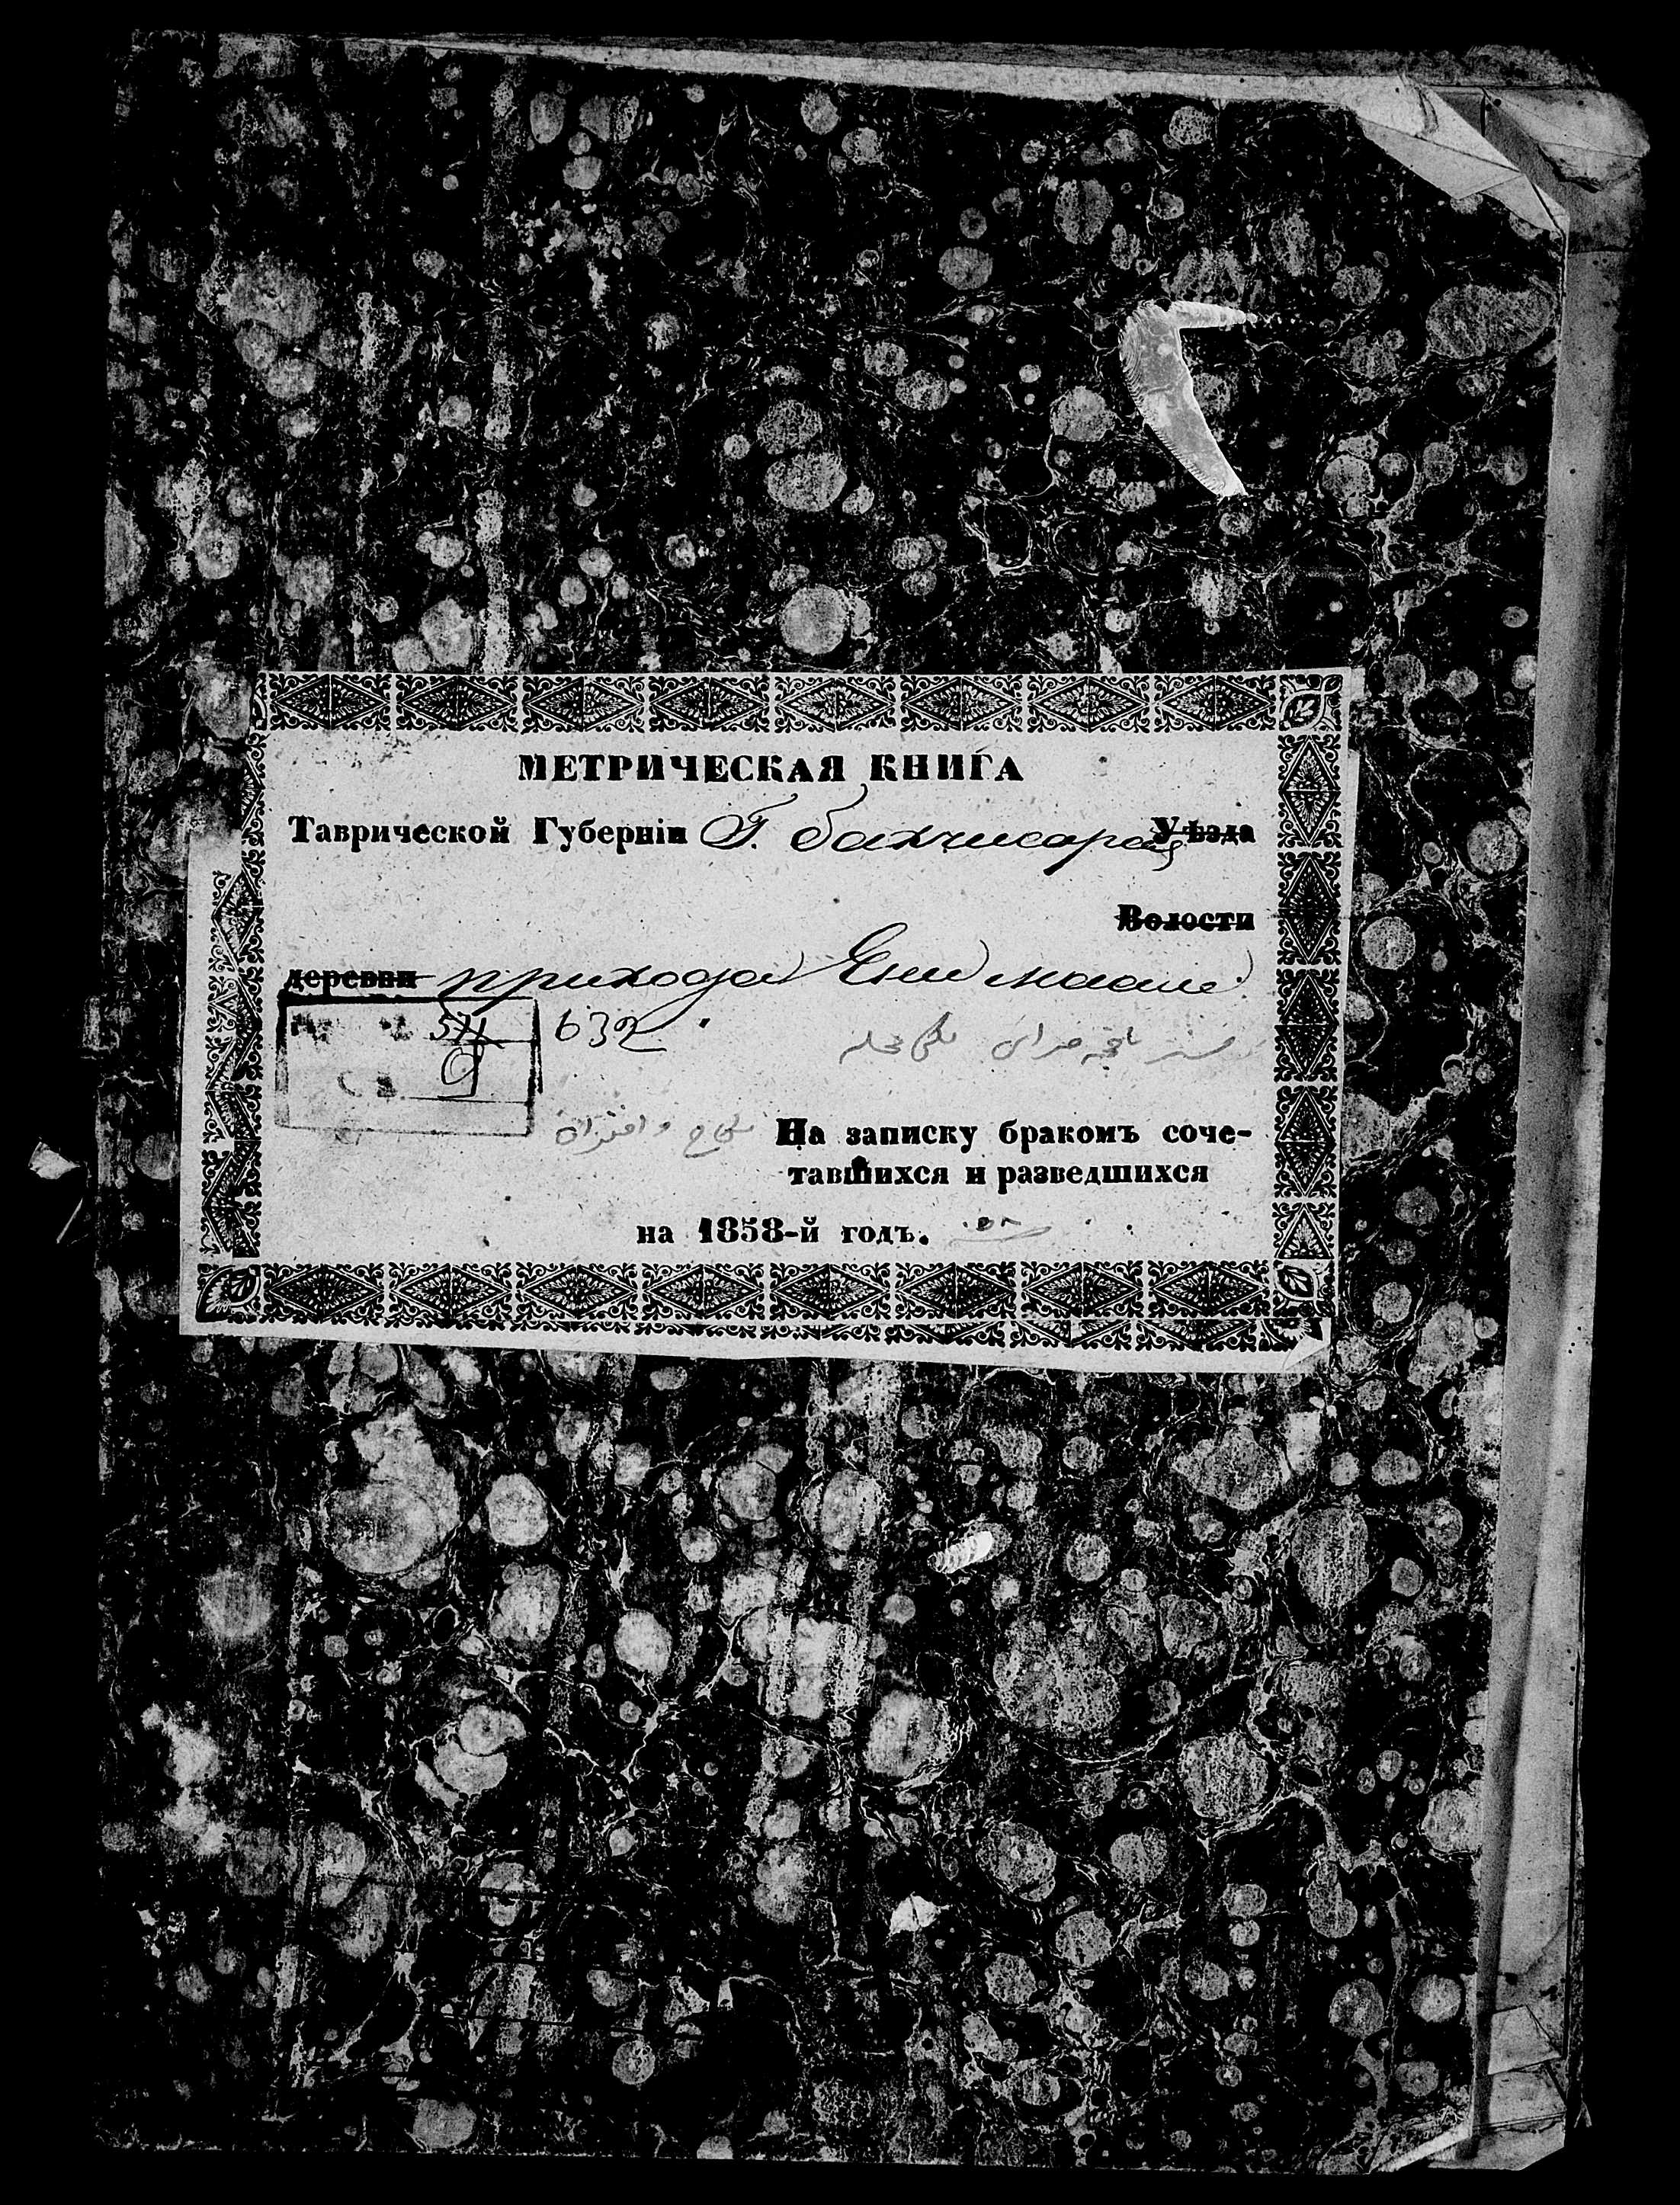 МЕТРИЧЕСКАЯ КНИГА
Таврической Губерніи Г. Бахчисарая Уѣзда
Волости
деревни прихода Ени маале
632
На записку бракомъ соче-
тавшихся и разведшихся
на 1858-й годъ.